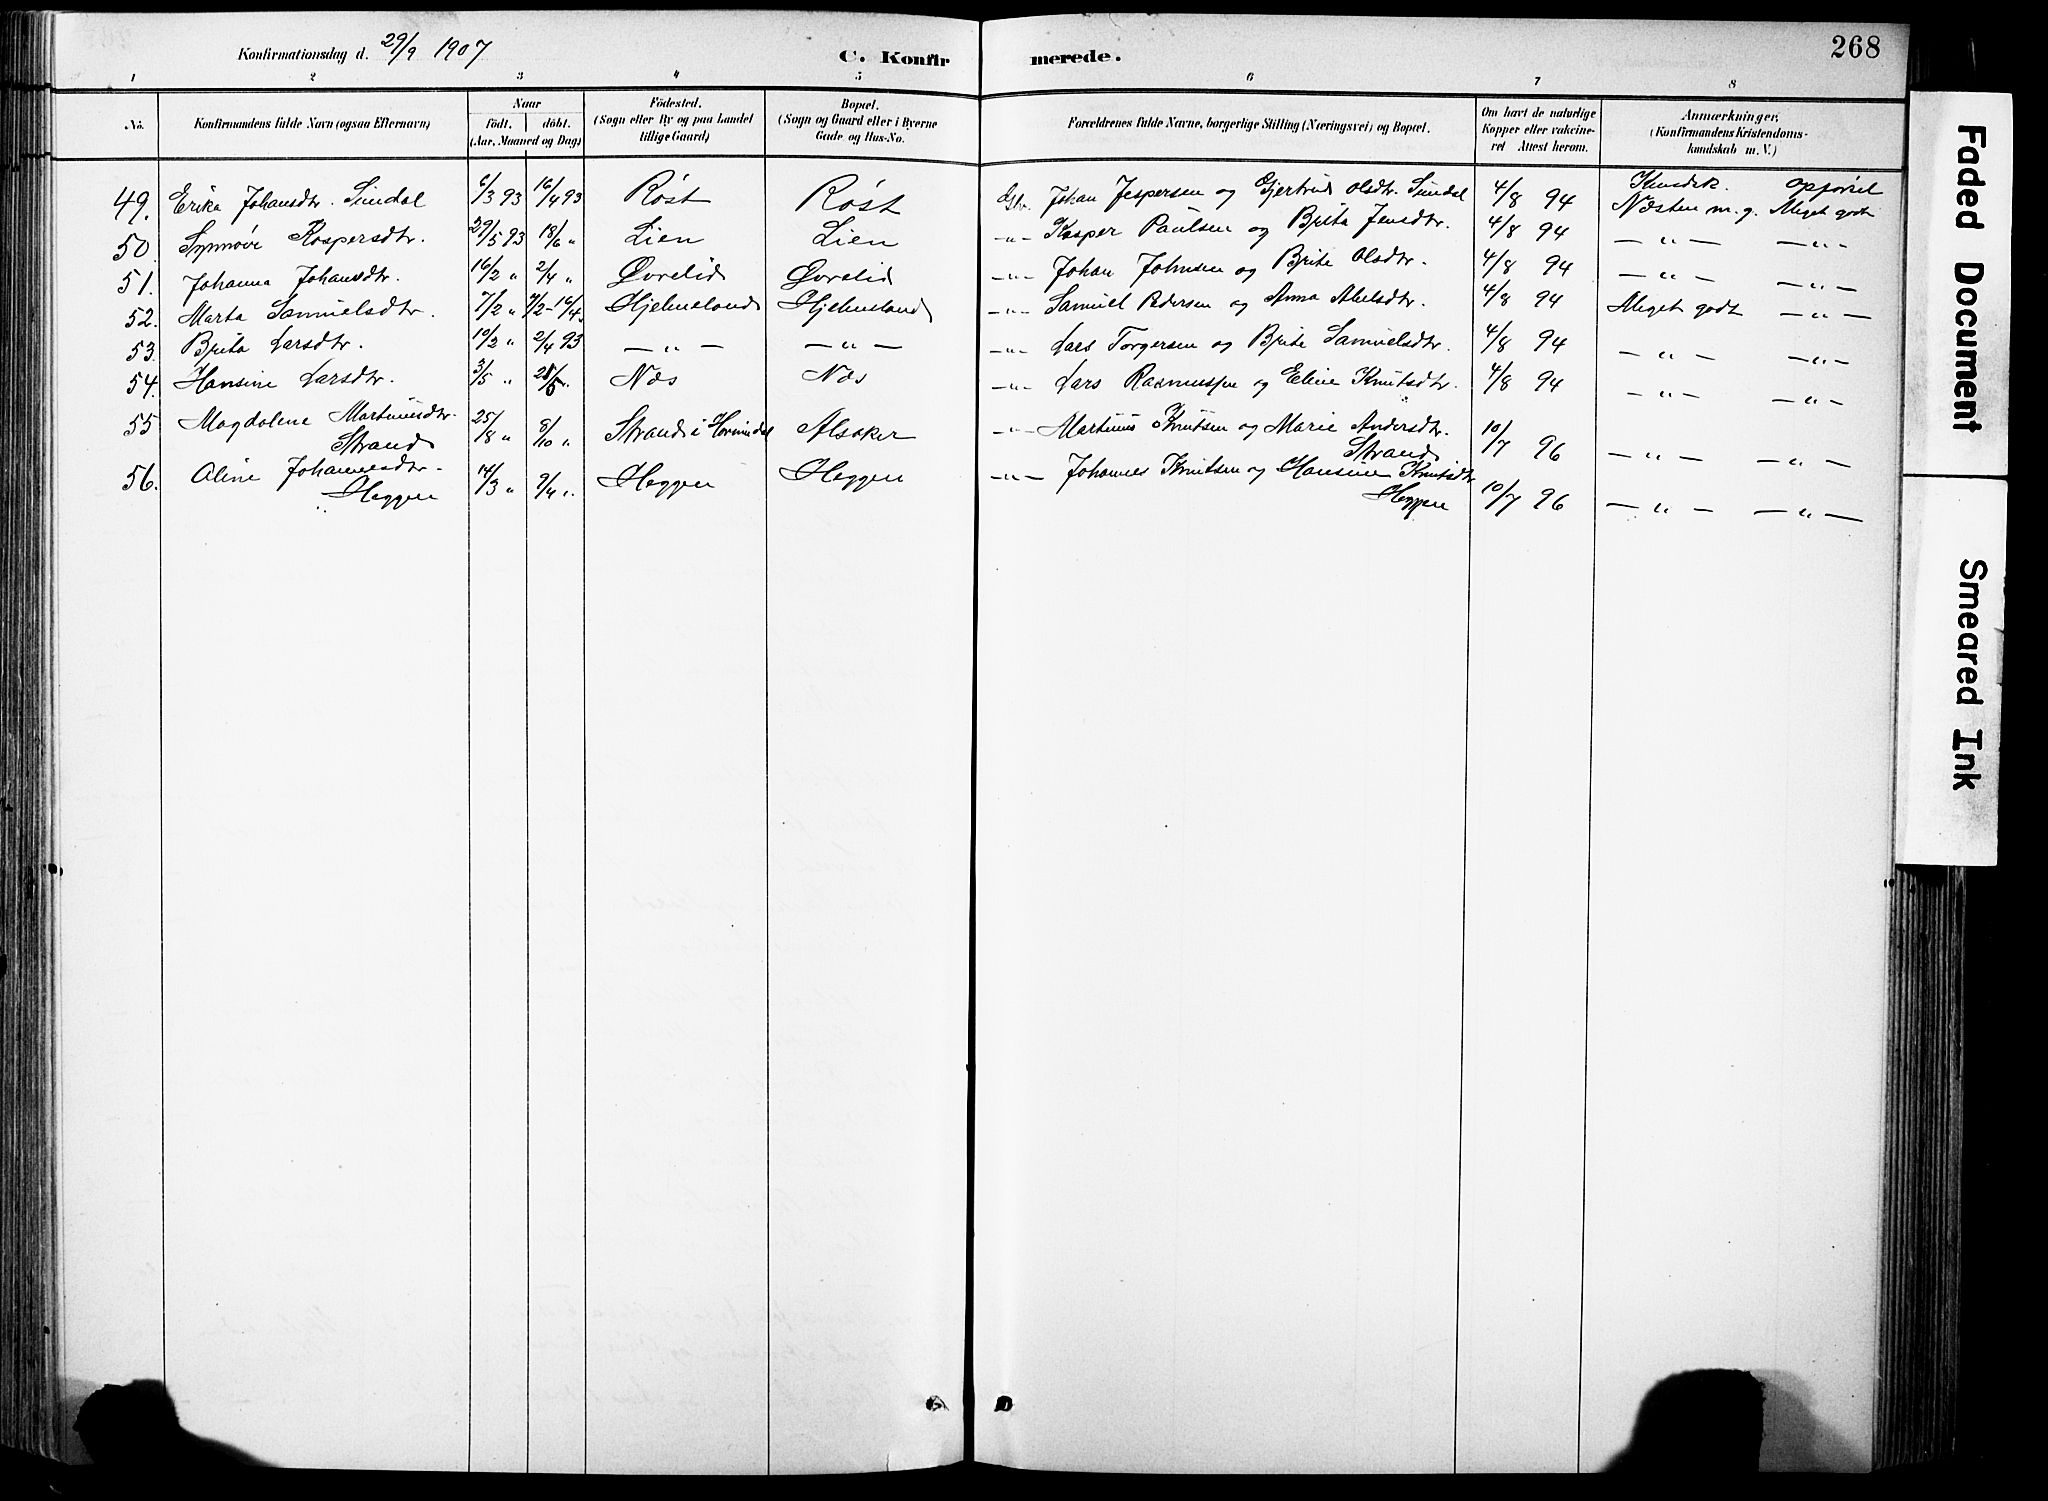 Konfirmationsdag d. 29/9 1907 C. Konfirmerede. 268
1 2 3 4 5 6 7 8
No. Konfirmandens fulde Navn (ogsaa Efternavn) Naar født, døbt. (Aar, Maaned og Dag) Födested. (Sogn eller By og paa Landet tillige Gaard) Bopæl. (Sogn og Gaard eller i Byerne Gade og Hus-No. Forældrenes fulde Navne, borgerlige Stilling (Næringsvei) og Bopæl. Om havt de naturlige Kopper eller vakcineret Attest herom. Anmærkninger, (Konfirmandens Kristendomskundskab m. V.)
Kundsk. Opførsel
49. Erika Johansdtr. Sundal 6/3 93 16/4 93 Røst Røst Gbr. Johan Jespersen og Gjertrud Olsdtr. Sundal 4/8 94 Næsten m. g. Meget godt
50. Synnøve Kaspersdtr. 29/5 93 18/6 " Lien Lien —"— Kasper Paulsen og Brita Jensdtr. 4/8 94 — " — — " —
51. Johanna Johansdtr. 16/2 " 2/4 " Øvrelid Øvrelid —"— Johan Johnsen og Brite Olsdtr. 4/8 94 — " — — " —
52. Marta Samuelsdtr. 7/2 " 7/2 - 16/4 " Hjelmeland Hjelmeland —"— Samuel Pedersen og Anna Abelsdtr. 4/8 94 Meget godt — " —
53. Brita Larsdtr. 10/2 " 2/4 93 — " — — " — —"— Lars Torgersen og Brite Samuelsdtr. 4/8 94 — " — — " —
54. Hansine Larsdtr. 3/5 " 28/5 " Næs Næs —"— Lars Rasmussen og Eline Knutsdtr. 4/8 94 — " — — " —
55 Magdalene Martinusdtr. 25/8 " 8/10 " Strand i Hornindal Alsaker —"— Martinus Knutsen og Marie Andersdtr. 10/7 96 — " — — " —
Strand Strand
56. Oline Johannesdtr. 14/3 " 9/4 " Heggen Heggen —"— Johannes Knutsen og Hansine Knutsdtr. 10/7 96 — " — — " —
Heggen Heggen
Faded Document
Smeared Ink